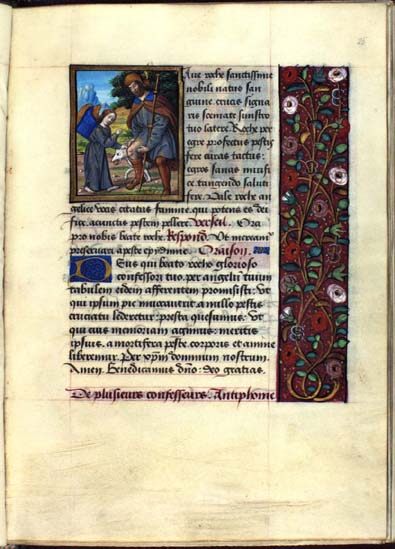 Aue roche sanctissime
nobili natus san
guine. crucis signa
ris scemate sinistro
tuo latere. Roche per
egre profectus pestis
fere curas tactus:
egros sanas mirifi
ce tangendo salut
fere. Vale roche an
gelice vocis citatus famine. qui potens es dei
fice. a cunctis pestem pellere. Verset. Ora
pro nobis beate roche. Respond. Ut mereamur
preseruari a peste epydimie. Oraison.
Deus qui beato rocho glorioso
confessori tuo. per angelum tuum
tabulem eidem afferentem promisisti: vt
qui ipsum pie inuocauerit a nullo pestis
cruciatu lederetur: presta quesumus. vt
qui eius memoriam agimus: meritis
ipsius. a mortifera peste corporis et anime
liberemur. Per xpm dominum nostrum.
Amen. Benedicamus dno. deo gratias.
De plusieurs confesseurs. Antiphone